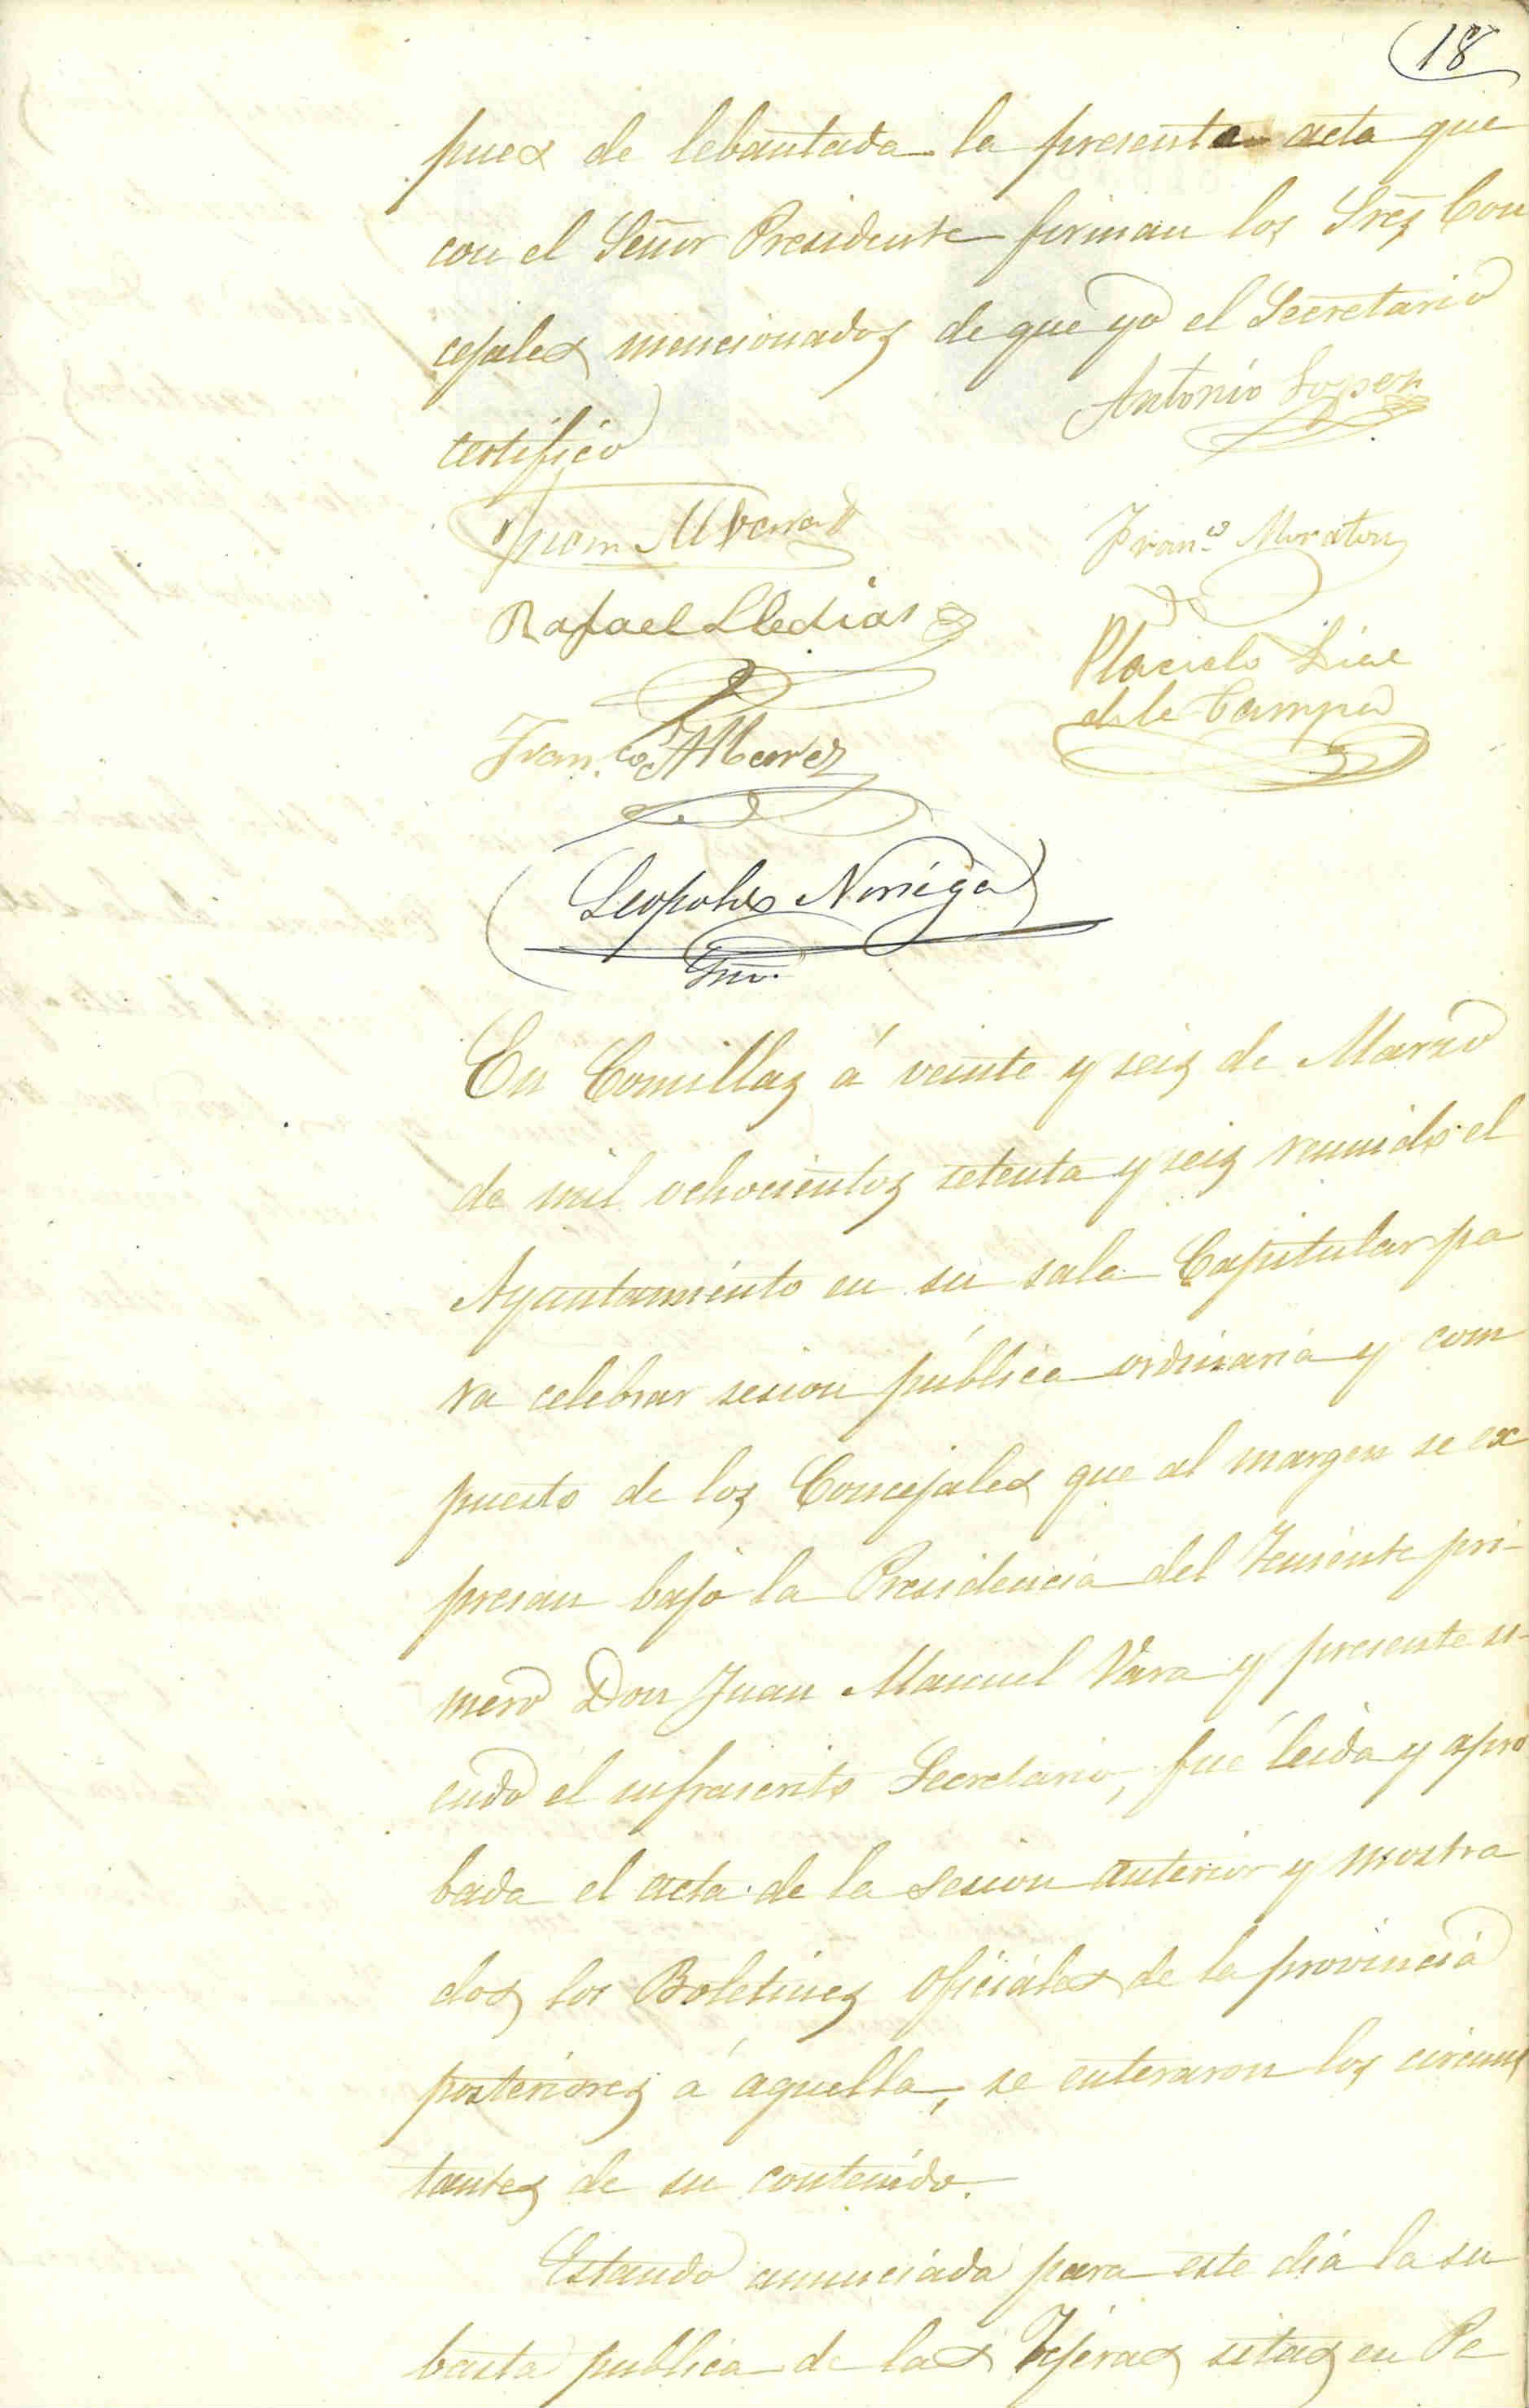 18
pues de lebantada la presente acta que
con el Señor Presidente firman los Sres Con
cejales mencionados de que yo el Secretario
certifico
Antonio Lopez
Juan M Vara
Fran.co Moraton
Rafael Lledias
Placido Dias
de la Campa
Fran.co Alvarez
Leopoldo Noriega
Srio.
En Comillas á veinte y seis de Marzo
de mil ochocientos setenta y seis reunido el
Ayuntamiento en su sala Capitular pa
ra celebrar sesion pública ordinaria y com
puesto de los Concejales que al margen se ex
presan bajo la Presidencia del Teniente pri-
mero Don Juan Manuel Vara y presente si-
endo el infrascrito Secretario, fué leida y apro
bada el acta de la sesion anterior y mostra
dos los Boletines oficiales de la provincia
posteriores á aquella, se enteraron los circuns
tantes de su contenido.
Estando anunciada para este dia la su
basta publica de las Tejeras sitas en Pe